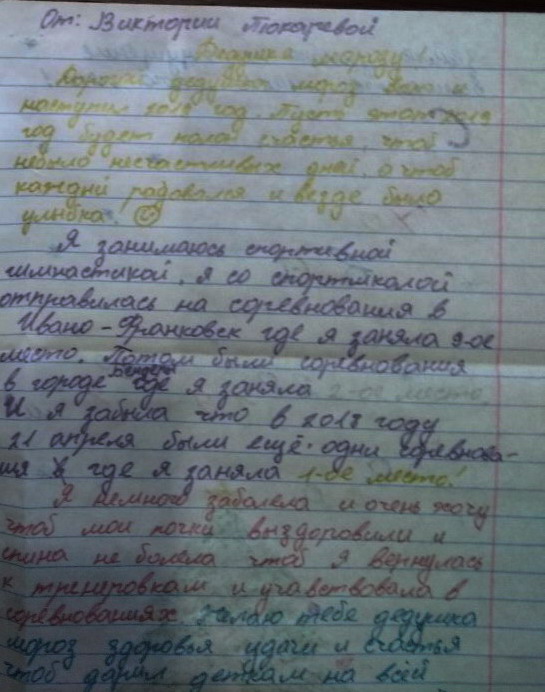 От: Виктории Токаревой
Дедушка морозу!
Дорогой дедушка мороз вот и
наступил 2019 год. Пусть этот 2019
год будет полон счастья, чтоб
небыло несчастливых дней, а чтоб
каждый радовался и везде было
улыбка
Я занимаюсь спортивной
гимнастикой. я со спортшколой
отправилась на соревнования в
Ивано-Франковск где я заняла 9-ое
место. Потом были соревнования
в городе Бендеры где я заняла 2-ое место.
И я забыла что в 2018 году
21 апреля были ещё одни соревнова-
ния где я заняла 1-ое место!
Я немного заболела и очень хочу
чтоб мои почки выздоровили и
спина не болела чтоб я вернулась
к тренеровкам и учавствовала в
соревнованиях. Желаю тебе дедушка
мороз здоровья удачи и счастья
чтоб дарил деткам на всей